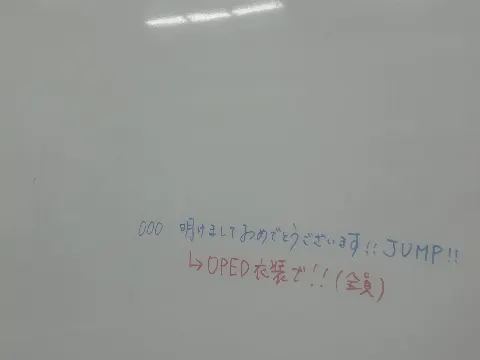 000 明けましておめでとうございます!! JUMP!!
↳OPED衣装で!!(全員)